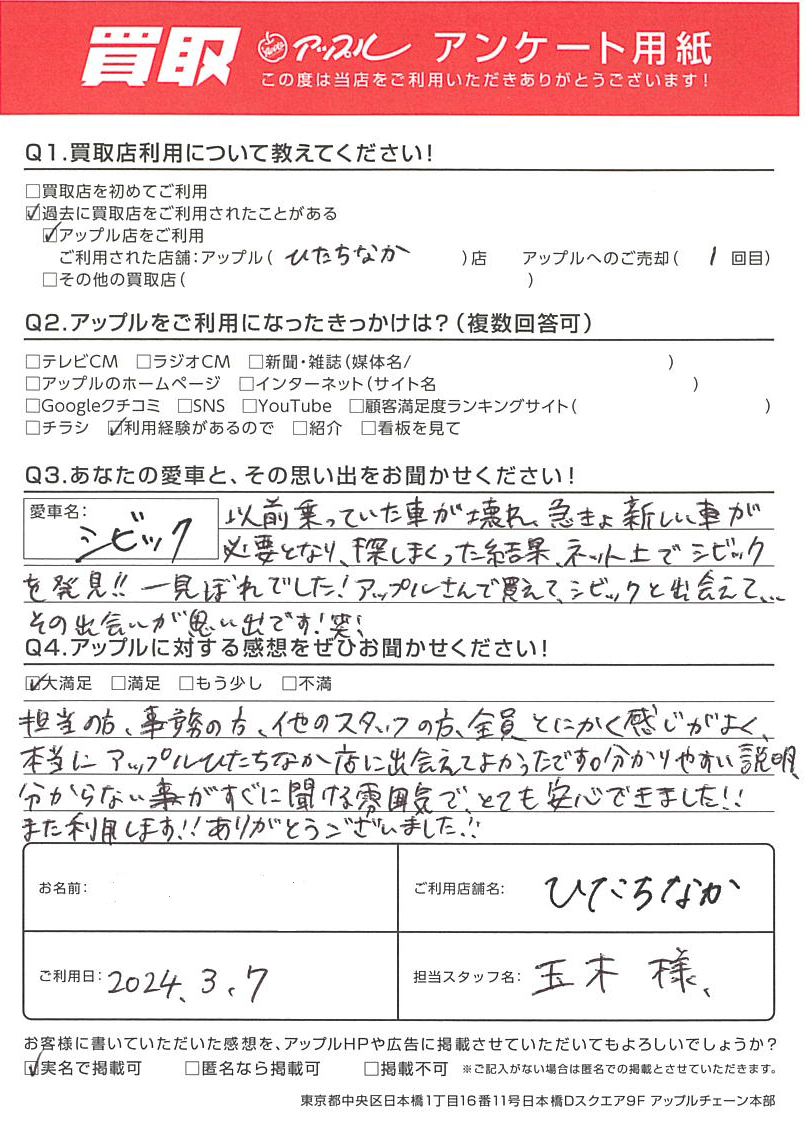 買取 アップル アンケート用紙
この度は当店をご利用いただきありがとうございます!
Q1.買取店利用について教えてください!
□買取店を初めてご利用
☑過去に買取店をご利用されたことがある
☑アップル店をご利用
ご利用された店舗:アップル( ひたちなか )店 アップルへのご売却( 1 回目)
□その他の買取店( )
Q2.アップルをご利用になったきっかけは?(複数回答可)
□テレビCM □ラジオCM □新聞・雑誌(媒体名/ )
□アップルのホームページ □インターネット(サイト名 )
□Googleクチコミ □SNS □YouTube □顧客満足度ランキングサイト( )
□チラシ ☑利用経験があるので □紹介 □看板を見て
Q3.あなたの愛車と、その思い出をお聞かせください!
愛車名: シビック
以前乗っていた車が壊れ、急きょ新しい車が
必要となり、探しまくった結果、ネット上でシビック
を発見!! 一見ぼれでした!アップルさんで買えて、シビックと出会えて、、、
その出会いが思い出です!笑!
Q4.アップルに対する感想をぜひお聞かせください!
☑大満足 □満足 □もう少し □不満
担当の方、事務の方、他のスタッフの方、全員とにかく感じがよく、
本当にアップルひたちなか店に出会えてよかったです。分かりやすい説明、
分からない事がすぐに聞ける雰囲気で、とても安心できました!!
また利用します!!ありがとうございました!!
お名前:
ご利用店舗名: ひたちなか
ご利用日: 2024.3.7
担当スタッフ名: 玉木 様、
お客様に書いていただいた感想を、アップルHPや広告に掲載させていただいてもよろしいでしょうか?
☑実名で掲載可 □匿名なら掲載可 □掲載不可 ※ご記入がない場合は匿名での掲載とさせていただきます。
東京都中央区日本橋1丁目16番11号日本橋Dスクエア9F アップルチェーン本部